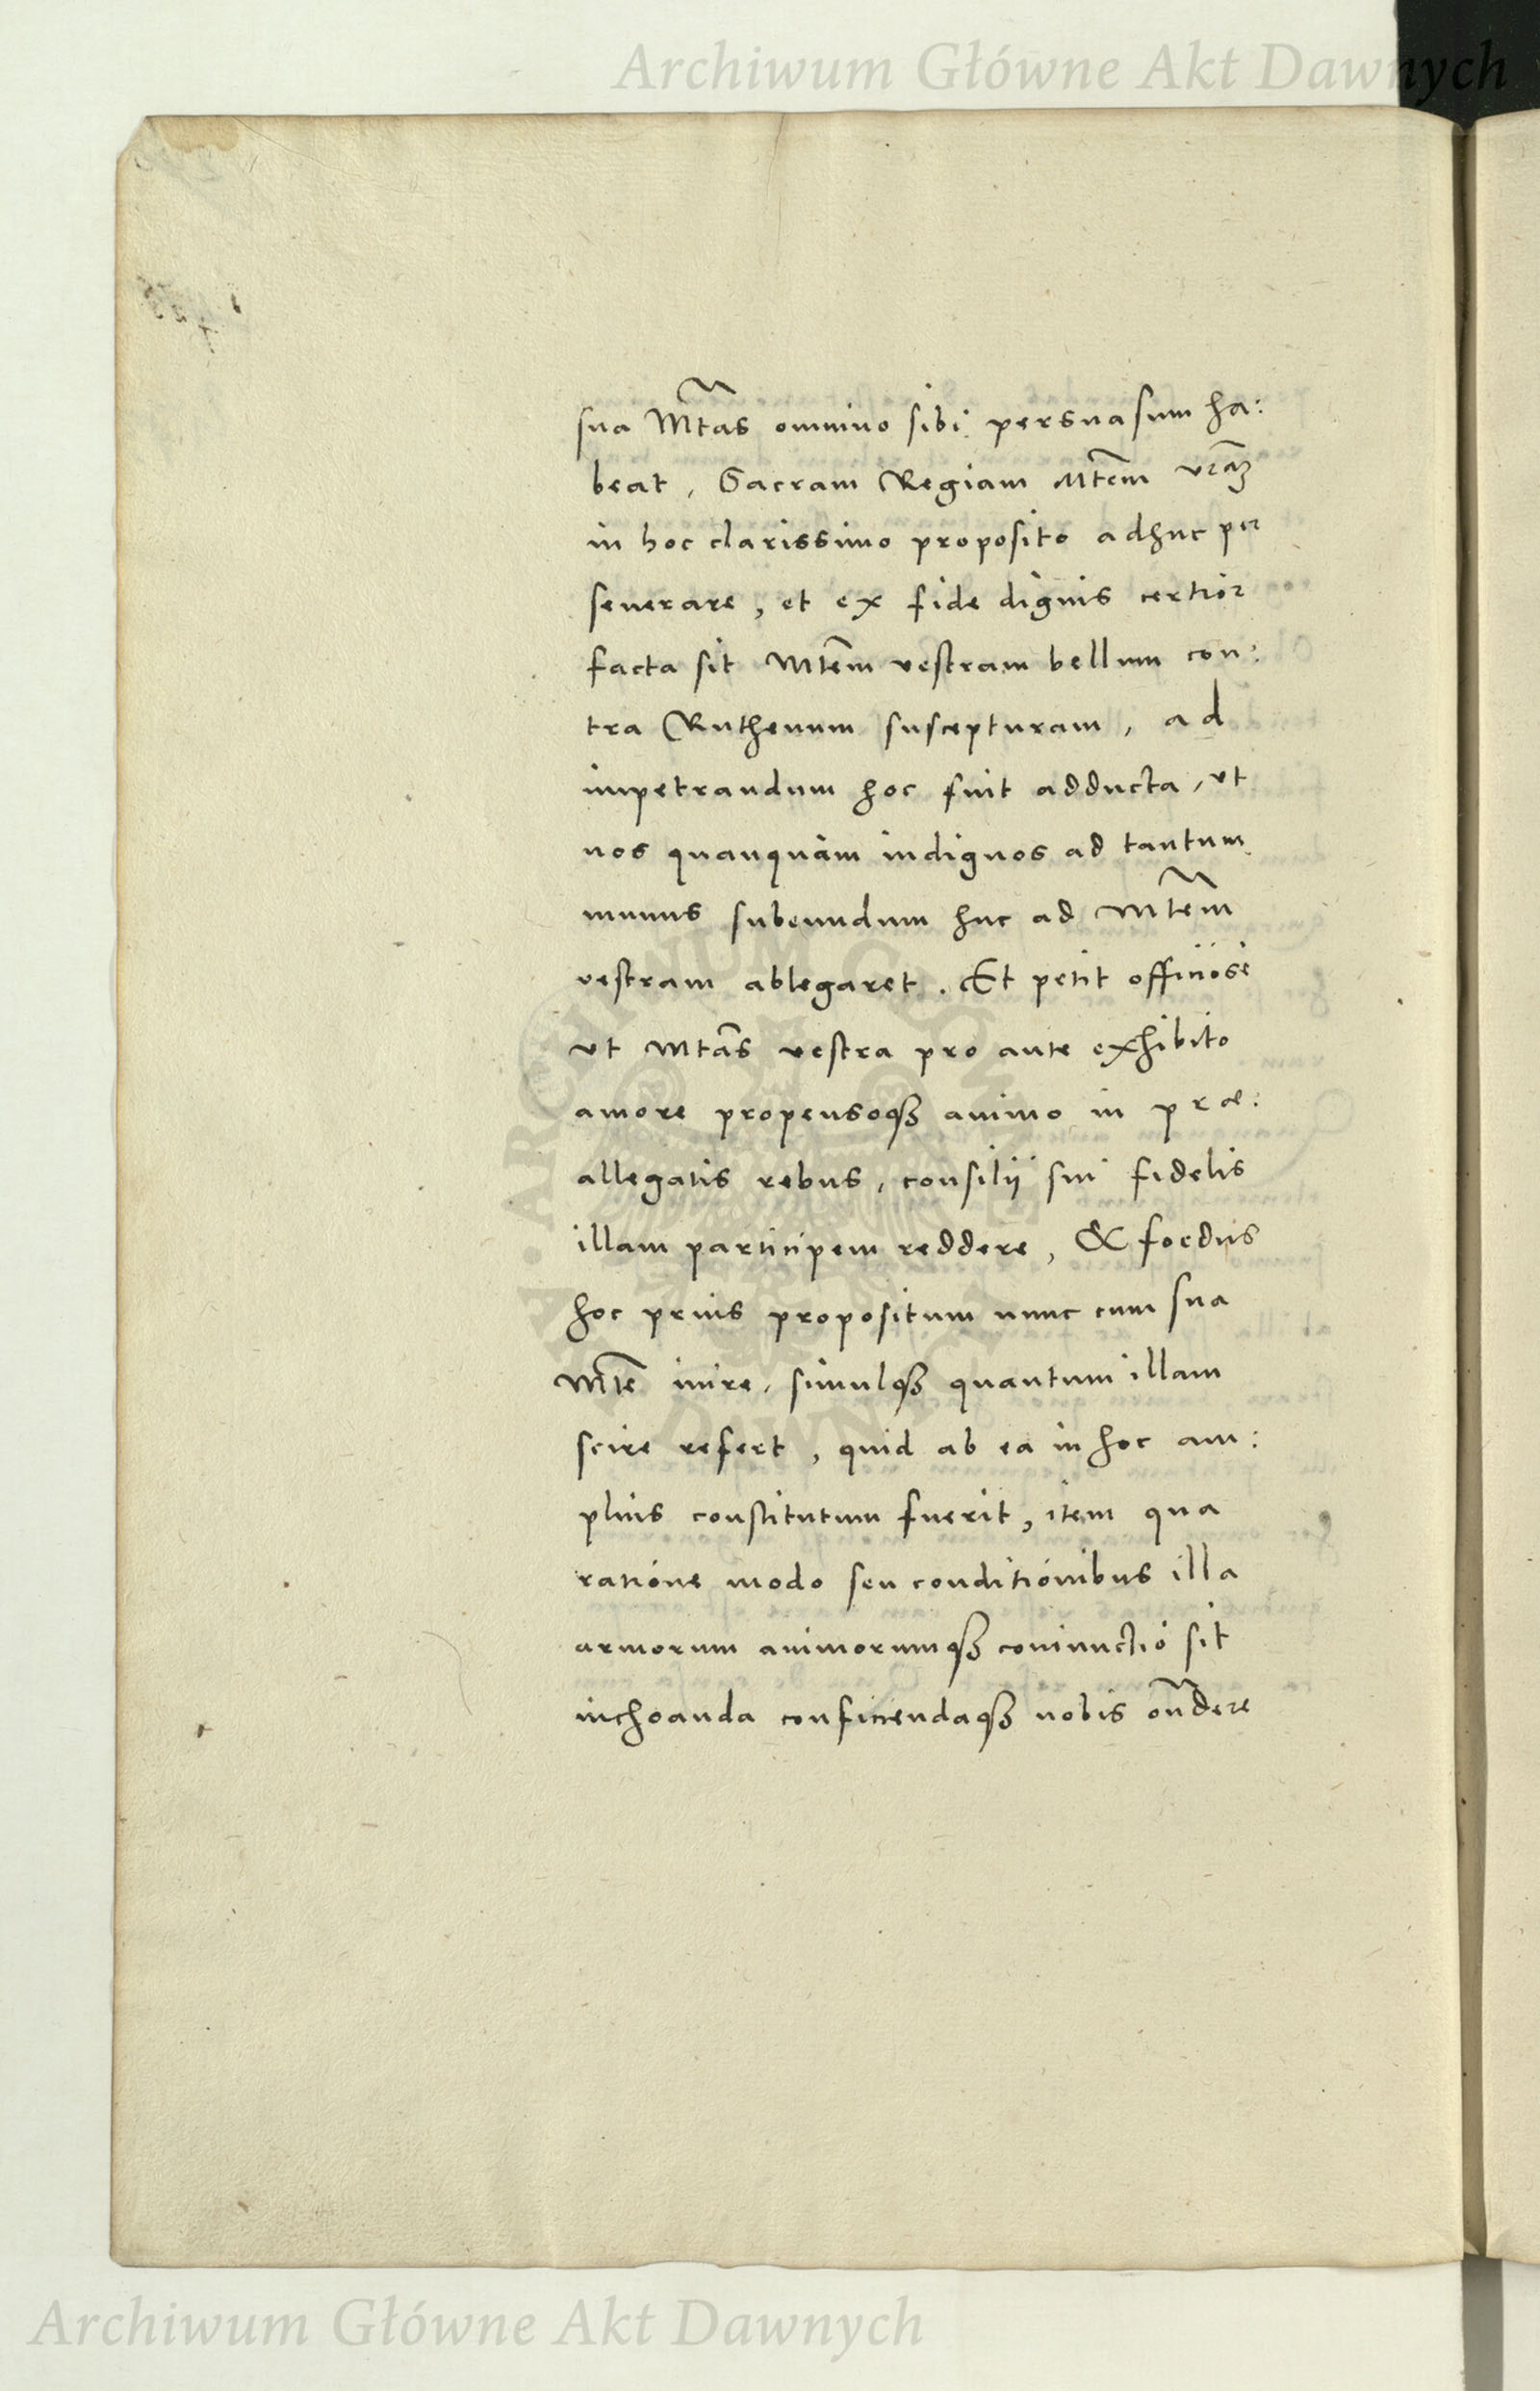 Archiwum Główne Akt Dawnych
sua Mtãs omnino sibi persuasum ha:
beat, Sacram Regiam Mtẽm vrãȝ
in hoc clarissimo proposito adhuc per
seuerare, et ex fide dignis certior
facta sit Mtẽm vestram bellum con:
tra Ruthenum suscepturam, ad
impetrandum hoc fuit adducta, vt
nos quanquàm indignos ad tantum
munus subeundum huc ad Mtẽm
vestram ablegaret. Et petit officiose
vt Mtãs vestra pro ante exhibito
amore propensoqȝ animo in præ:
allegatis rebus, consilij sui fidelis
illam participem reddere, & foedus
hoc prius propositum nunc cum sua
Mtẽ inire, simulqȝ quantum illam
scire refert, quid ab ea in hoc am:
plius constitutum fuerit, item qua
ratione modo seu conditionibus illa
armorum animorumqȝ coniunctio sit
inchoanda conficiendaqȝ nobis oñdere
Archiwum Główne Akt Dawnych